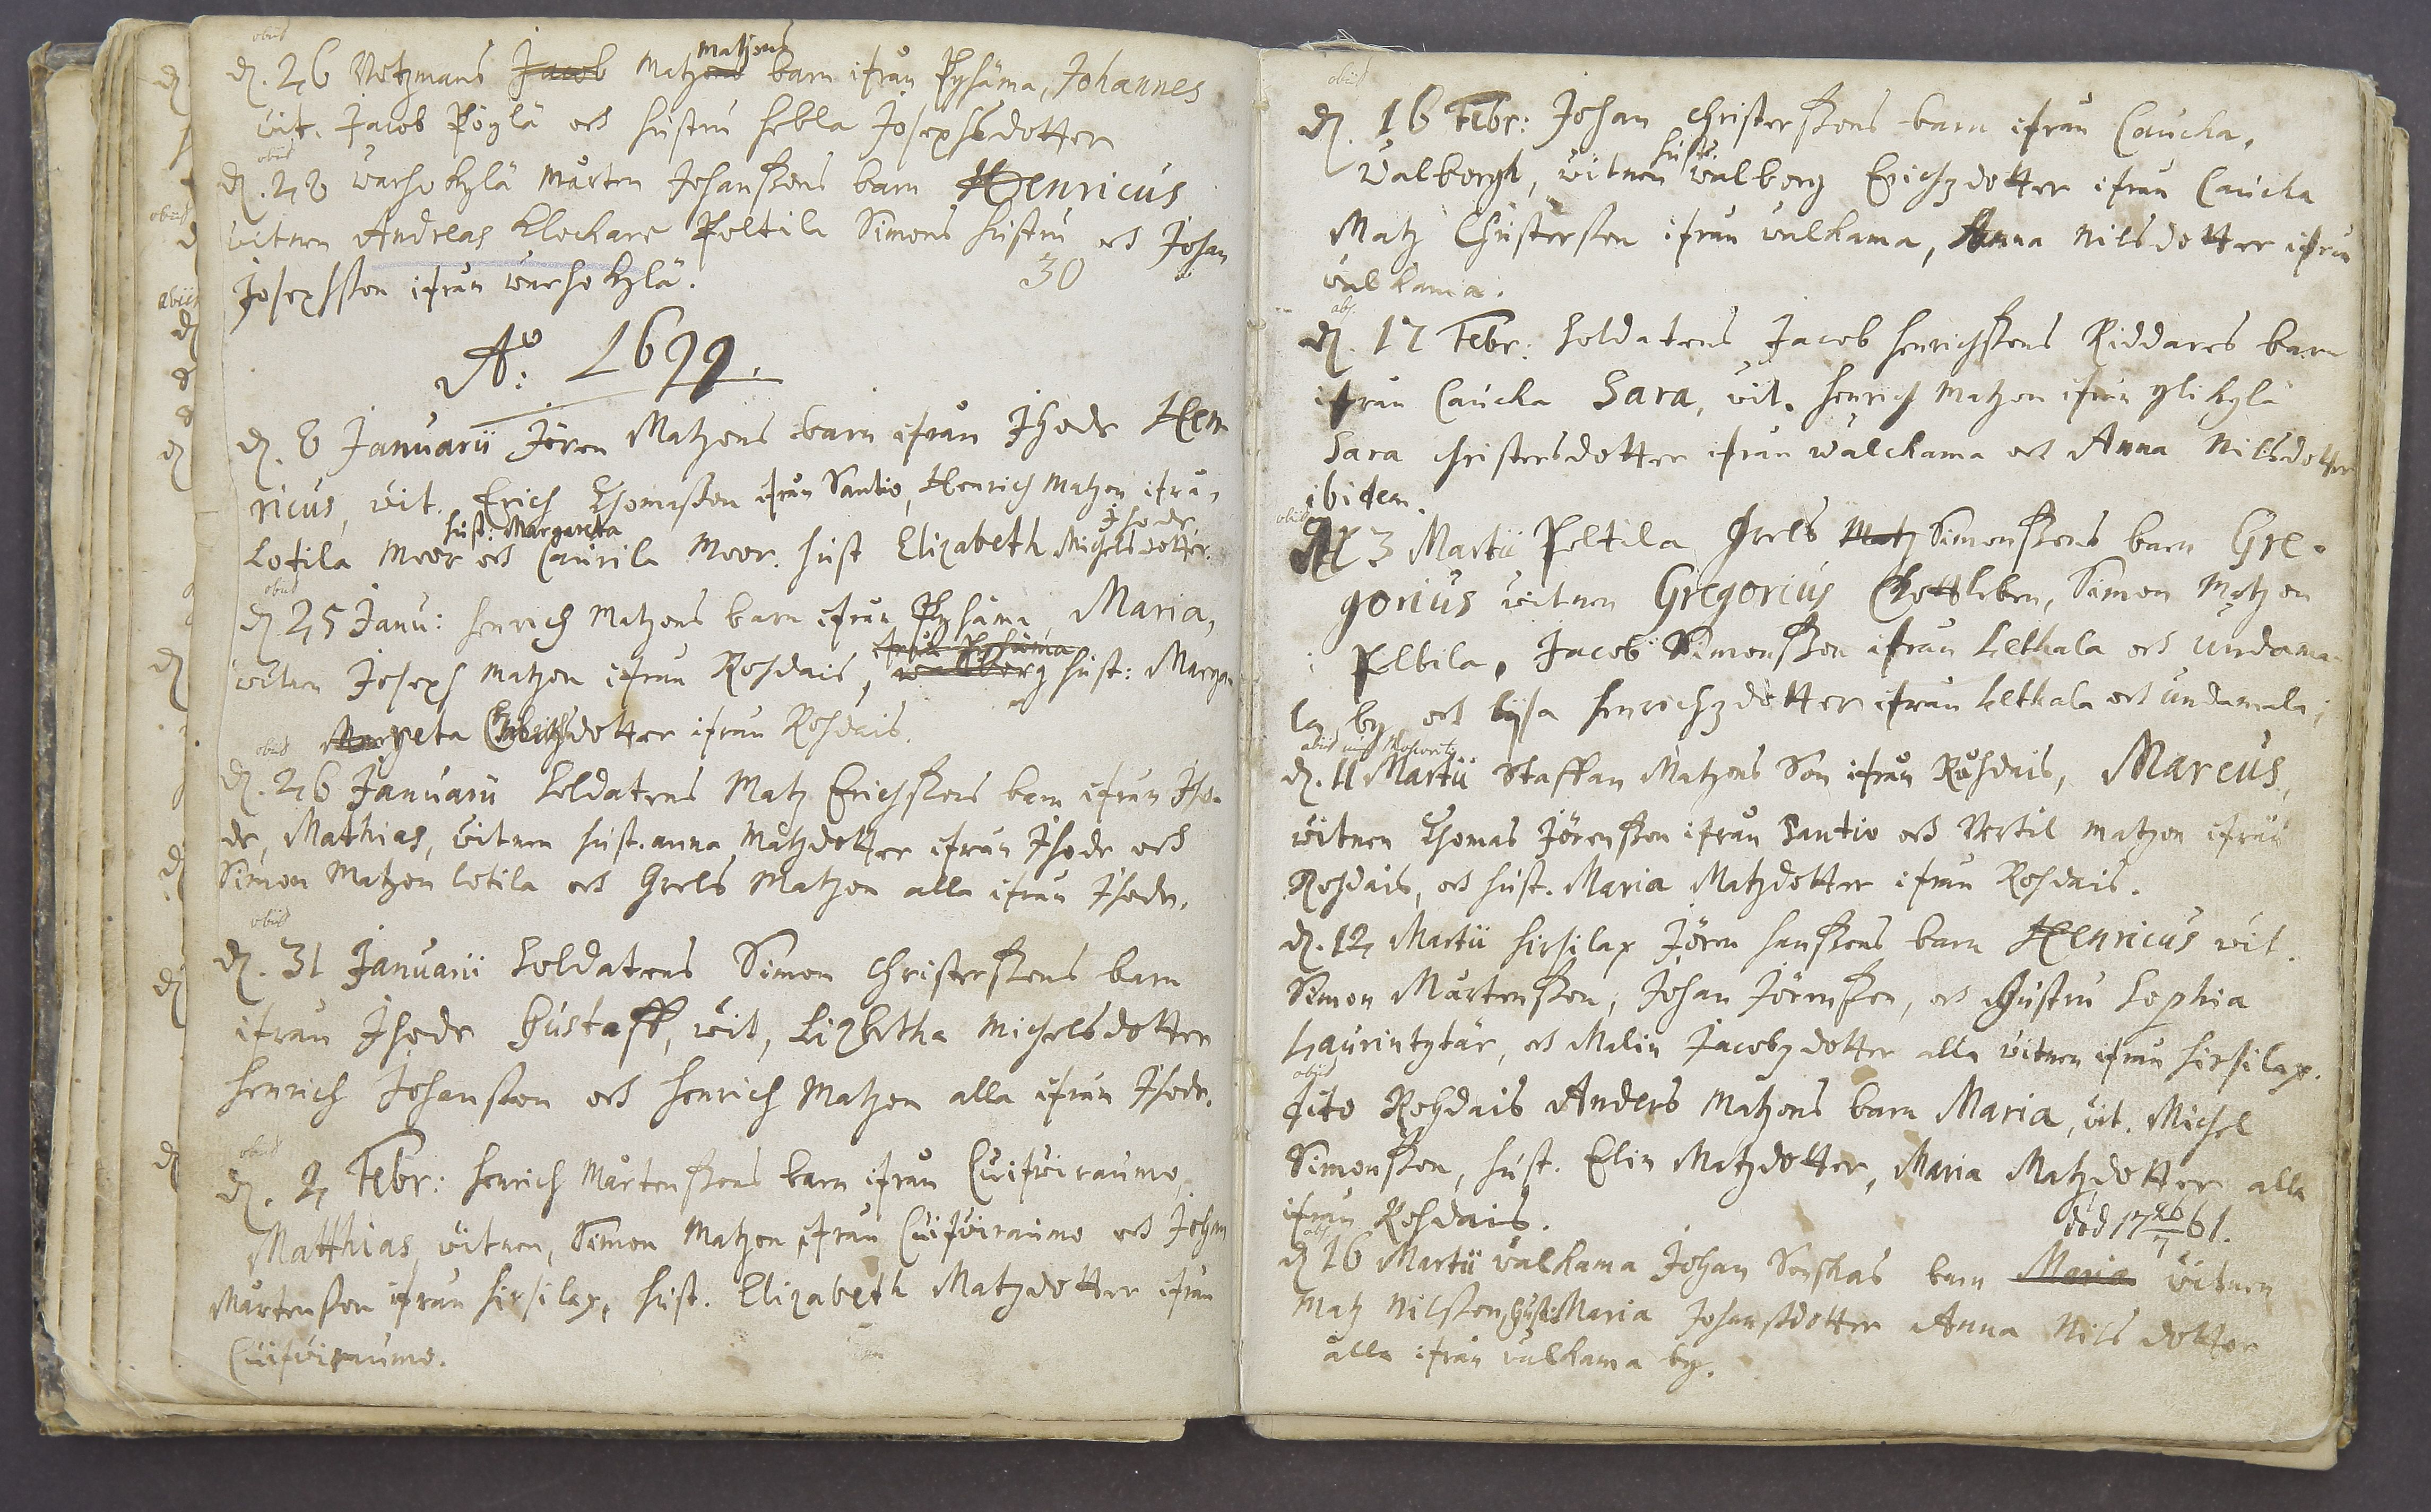 obiit
d. 26 Votzmans Jacob Matzons Matzons barn ifrån Pyhäma, Johannes
vit. Jacob Pöylä och hustru hebla Josephsdotter
obiit
d. 28 warhokylä Mårten Johanssons barn Henricus
vitnen Andreas Klockare Peltila Simons hustru och Johan
Josephsson ifrån warhokylä.
30
Ao: 1699.
d. 8 Januarii Jören Matzons barn ifrån Ihode Hen
ricus, vit. Erich Thomasson ifrån Santio, Henrich Matzon ifrån
Lotila Moor och hust: Margareta Caurila Moor. hust Elizabeth Michelsdotter Ihode
obiit
d 25 Janu: henrich Matzons barn ifrån Pyhäma Maria,
vitnen Joseph Matzon ifrån Rohdais, walborg ifrån Pyhäma hust: Marga
Margreta dotter ifrån Rohdais.
obiit
d. 26 Januarii Soldatens Matz Erichssons barn ifrån Iho-
de, Mathias, vitnen hust. anna Matzdotter ifrån Ihode och
Simon Matzon lotila och Grels Matzon alla ifrån Ihode.
obiit
d. 31 Januarii Soldatens Simon Christerssons barn
ifrån Ihode Gustaff, vit, Lizbetha Michelsdotter
henrich Johansson och henrich Matzon alla ifrån Ihode.
obiit
d. 2 Febr: henrich Mårtenssons barn ifrån Cuifviraumo,
Matthias, vitnen, Simon Matzon ifrån Cuifviraumo och Johan
Mårtensson ifrån hirsilax, hust. Elizabeth Matzdotter ifrån
Cuifviraumo.
obiit
d. 16 Febr: Johan Christerssons barn ifrån Caucka,
Valborgh, vitnen hust: walborg Erichzdotter ifrån Caucka
Matz Christersson ifrån valkama, Anna Nilsdotter ifrån
valkama.
ab.
d. 17 Febr: Soldatens Jacob henrichssons Riddares barn
ifrån Caucka Sara, vit. henrich Matzon ifrån ylikylä
Sara Christersdotter ifrån walckama och Anna Nilsdotter
ibidem.
obiit
d 3 Martii Peltila Grels Matz Simonssons barn Gre-
gorius vitnen Gregorius Simon Matzon
i Peltila, Jacob Simonsson ifrån Lethala och undama
la by och lysa henrichzdotter ifrån Lethala och undamala;
abiit
d. 11 Martii Staffan Matzons Son ifrån Rohdais, Marcus,
vitnen Thomas Jörensson ifrån Santio och Bertil Matzon ifrån
Rohdais, och hust. Maria Matzdotter ifrån Rohdais.
d. 12 Martii hirsilax Jören hanssons barn Henricus vit.
Simon Mårtensson, Johan Jörensson, och hustru Sophia
Laurintytär, och Malin Jacobzdotter alla vitnen ifrån hirsilax.
obiit
dito Rohdais Anders Matzons barn Maria, vit. Michel
Simonsson, hust. Elin Matzdotter, Maria Matzdotter alla
ifrån Rohdais.
död 17 26/7 61.
ab.
d 16 Martii valkama Johan barn Maria vitnen
Matz Nilsson, hust: Maria Johansdotter Anna Nils dotter
alla ifrån valkama by.